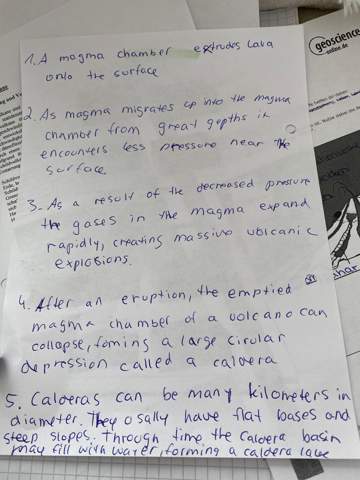 1. A magma chamber extrudes Lava
onto the surface
2. As magma migrates up into the magma
chamber from great gepths it
encounters less pressure near the
surface.
3. As a result of the decreased pressure
the gases in the magma expand
rapidly, creating massive volcanic
explosions.
4. After an eruption, the emptied
magma chamber of a volcano can
collapse, foming a large cirular
depression called a caldera
5. Calderas can be many kilometers in
diameter. They usally have flat bases and
steep slopes. Through time the caldera basin
may fill with water, forming a caldera lake
geoscience
-online.de